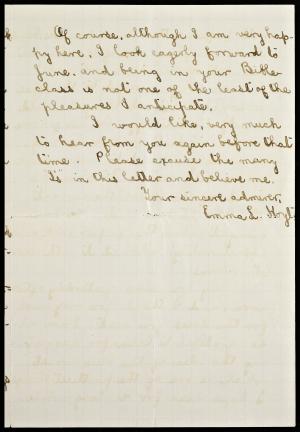 Of course, although I am very hap-
py here, I look eagerly forward to
June, and being in your Bible
class is not one of the least of the
pleasures I anticipate.
I would like, very much
to hear from you again before that
time. Please excuse the many
"I"s in this letter and believe me.
Your sincere admirer,
Emma L. Hoyt